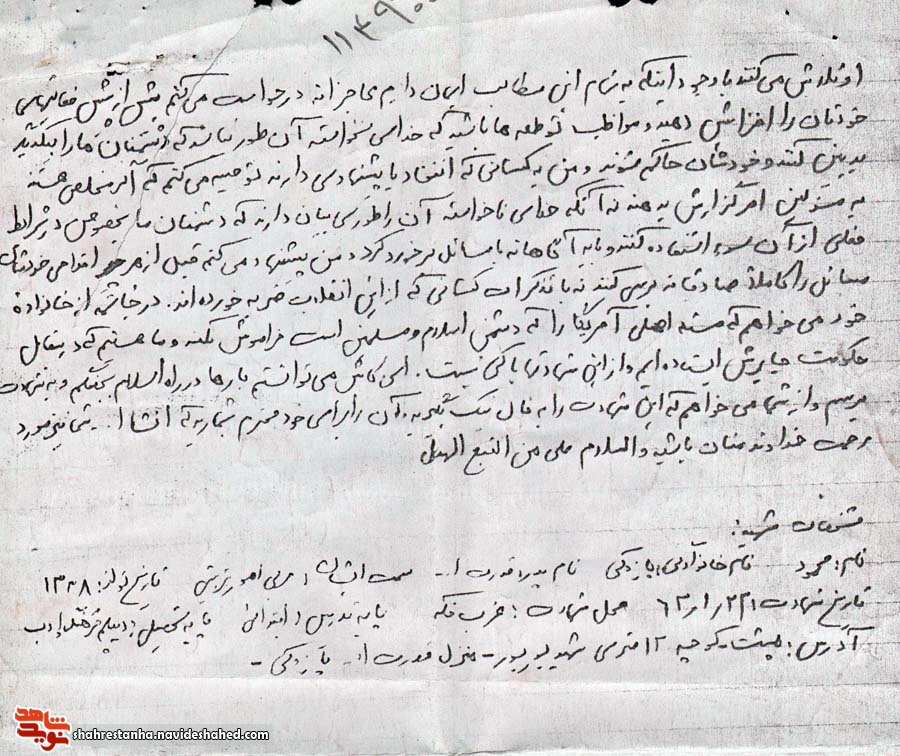 ۱۱۳۹۰۰
او تلاش می کنند با وجود اینکه به تمام این مطالب ایمان داریم عاجزانه درخواست می کنم بیش از پیش فعالیتهای
خودتان را افزایش دهید و مواظب توطعه ها باشید که خدای نخواسته آن طور نباشد که دشمنان ما را به یکدیگر
بدبین کنند و خودشان حاکم شوند و من به کسانی که انتقاد یا پیشنهادی دارند توصیه می کنم که اگر مخلص هستند
به مسئولین امر گزارش بدهند نه آنکه خدای ناخواسته آن را طوری بیان دارند که دشمنان ما بخصوص در شرایط
فعلی از آن سوء استفاده کنند و نا به آگاهانه با مسائل برخورد کرد و من پیشنهاد می کنم قبل از هر اقدامی خودتان
مسائل را کاملاً صادقانه بررسی کنند نه با تذکرات کسانی که از این انقلاب ضربه خورده اند. در خاتمه از خانواده
خود می خواهم که مسئله اصلی آمریکا را که دشمن اسلام و مسلمین است فراموش نکنند و ما هستیم که در مقابل
حکومت جابرش ایستاده ایم و از این شهادتها باکی نیست. ای کاش می توانستم بارها در راه اسلام بجنگم و به شهادت
برسم و از شما می خواهم که این شهادت را به فال نیک بگیرید و آن را برای خود محترم شمارید که انشاا... شما نیز مورد
مرحمت خداوند منان باشید والسلام علی من التبع الهدی
مشخصات شهید:
نام: محمود نام خانوادگی: پازوکی نام پدر: قدرت ا... سمت: مربی امور تربیتی تاریخ تولد: ۱۳۳۸
تاریخ شهادت: ۶۲/۱/۲۲ محل شهادت: غرب فکه پایه تدریس: ابتدائی پایه تحصیلی: دیپلم فرهنگ و ادب
آدرس: کوچه ۱۲ متری شهید - منزل قدرت ا... پازوکی -
نوید شاهد
shahrestanha.navideshahed.com